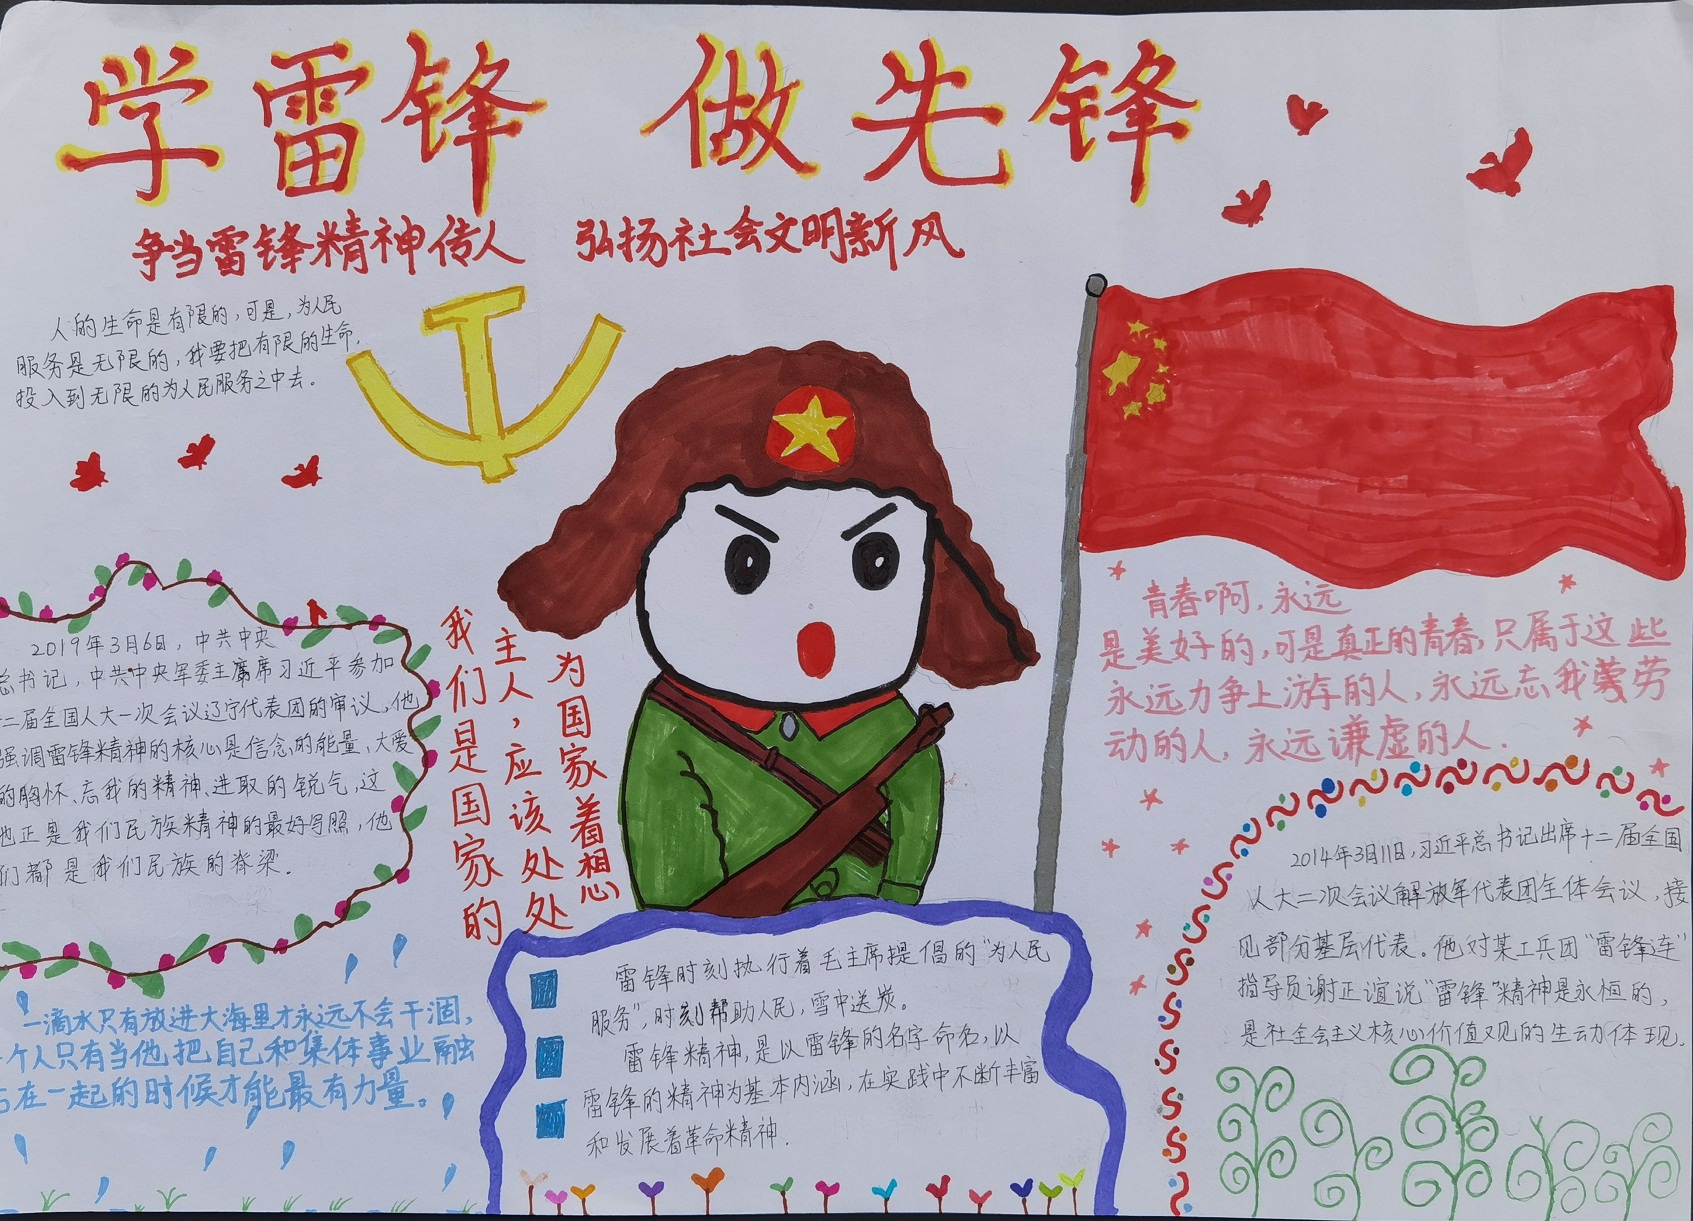 学雷锋 做先锋
争当雷锋精神传人 弘扬社会文明新风
人的生命是有限的,可是,为人民
服务是无限的,我要把有限的生命,
投入到无限的为人民服务之中去。
2019年3月6日,中共中央
总书记,中共中央军委主席席习近平参加
二届全国人大一次会议辽宁代表团的审议,他
强调雷锋精神的核心是信念的能量,大爱
的胸怀、忘我的精神、进取的锐气,这
也正是我们民族精神的最好写照,他
们都是我们民族的脊梁.
我们是国家的
主人,应该处处
为国家着想心
青春啊,永远
是美好的,可是真正的青春,只属于这些
永远力争上游的人,永远忘我劳
动的人,永远谦虚的人.
2014年3月11日,习近平总书记出席十二届全国
人大二次会议解放军代表团全体会议,接
见部分基层代表。他对某工兵团“雷锋连”
指导员谢正谊说“雷锋”精神是永恒的,
是社全会主义核心价值观的生动体现.
一滴水只有放进大海里才永远不会干涸,
个人只有当他把自己和集体事业融
在一起的时候才能最有力量。
雷锋时刻执行着毛主席提倡的“为人民
服务”,时刻帮助人民,雪中送炭。
雷锋精神,是以雷锋的名字命名,以
雷锋的精神为基本内涵,在实践中不断丰富
和发展着革命精神.